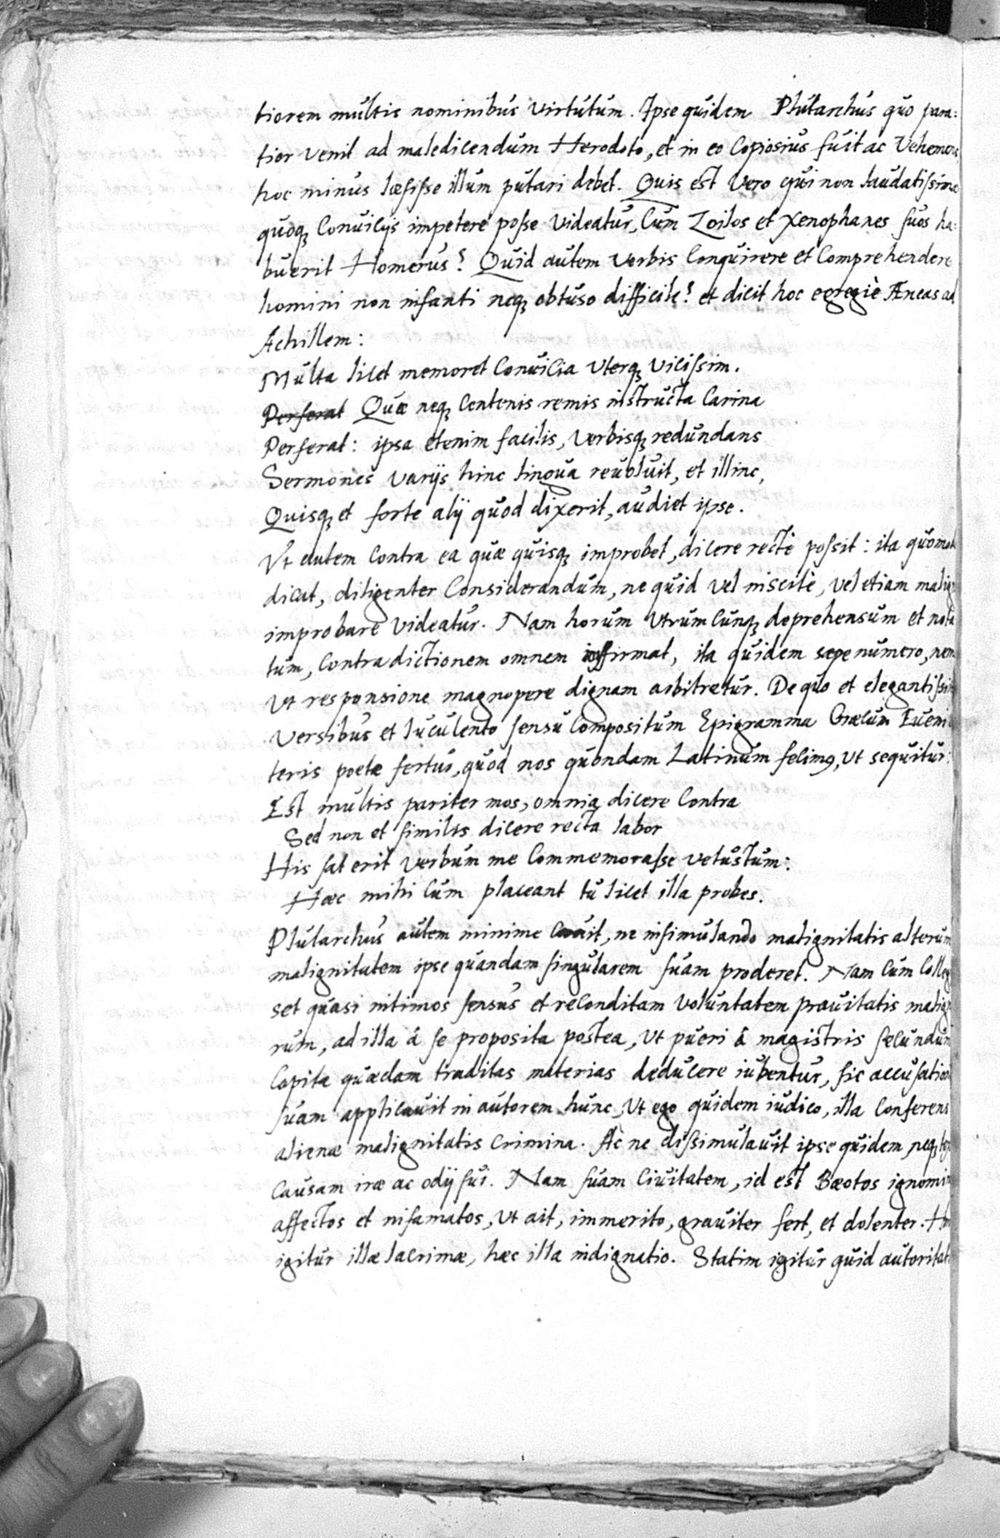 tiorem multis nominibus virtutum. Ipse quidem Plutarchus quo para:
tior venit ad maledicendum Herodoto, et in eo Copiosius fuit ac Vehemens
hoc minus læsisse illum putari debet. Quis est Vero qui non laudatissimos
quoq; Conuicijs impetere posse videatur, Cum Zoilos et Xenophanes suos ha:
buerit Homerus? Quid autem verbis Conquirere et Comprehendere
homini non infanti neq; obtuso difficile? et dicit hoc egregiè Æneas ad
Achillem:
Multa licet memoret Conuicia vterq; vicissim.
Perferat Quæ neq; Centenis remis instructa Carina
Perferat: ipsa etenim facilis, Verbisq; redundans
Sermones varijs hinc lingua reuoluit, et illinc,
Quisq; et forte alij quod dixerit, audiet ipse.
Vt autem Contra ea quæ quisq; improbet, dicere rectè possit: ita quomodo
dicat, diligenter Considerandum, ne quid vel inscitè, vel etiam
improbare videatur. Nam horum vtrum Cunq; deprehensum et nota
tum, Contradictionem omnem infirmat, ita quidem sæpe numero,
vt responsione magnopere dignam arbitretur. De quo et
versibus et luculento sensu Compositum Epigramma Græcum Eueni
teris poetæ fertur, quod nos quondam Latinum fecimus, vt sequitur:
Est multis pariter mos, omnia dicere Contra
Sed non et similis dicere recta labor
His sat erit verbum me Commemorasse vetustum:
Hæc mihi Cum placeant tu licet illa probes.
Plutarchus autem minime Cauit, ne insimulando malignitatis alterum
malignitatem ipse quandam singularem suam proderet. Nam Cum Colle
set quasi intimos sensus et reconditam voluntatem prauitatis malig
rum, ad illa à se proposita postea, vt pueri à magistris secundum
Capita quædam traditas materias deducere iubentur, sic accusation
suam applicauit in autorem hunc, vt ego quidem iudico, illa Conferens
alienæ malignitatis Crimina. Ac ne dissimulauit ipse quidem neq;
Causam iræ ac odij sui. Nam suam Ciuitatem, id est Bæotos ignomin
affectos et infamatos, vt ait, immerito, grauiter fert, et dolenter.
igitur illæ lacrimæ, hæc illa indignatio. Statim igitur quid autoritat